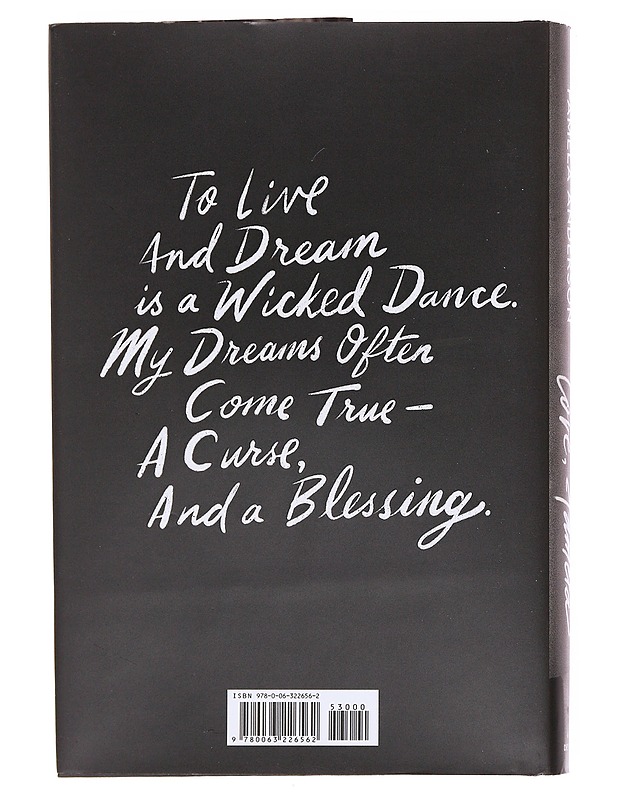 To Live
And Dream
is a Wicked Dance.
My Dreams Often
Come True—
A Curse,
And a Blessing.
PAMELA ANDERSON
Love, Pamela
ISBN 978-0-06-322656-2
53000
9 780063 226562